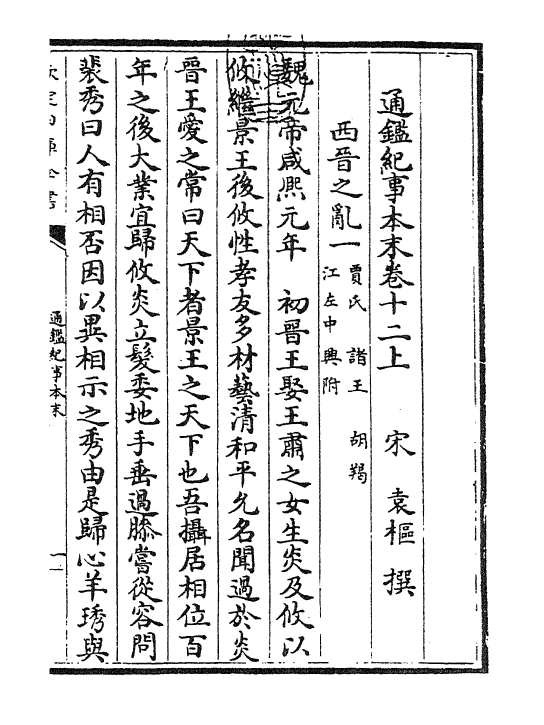 通鑑紀事本末卷十二上　宋　袁樞　撰
西晉之亂一　賈氏　諸王　胡羯
江左中興附
魏元帝咸熙元年　初晉王娶王肅之女生炎及攸以
攸繼景王後攸性孝友多材藝清和平允名聞過於炎
晉王愛之常曰天下者景王之天下也吾攝居相位百
年之後大業宜歸攸炎立髮委地手垂過膝嘗從容問
裴秀曰人有相否因以異相示之秀由是歸心羊琇與
欽定四庫全書
通鑑紀事本末
一